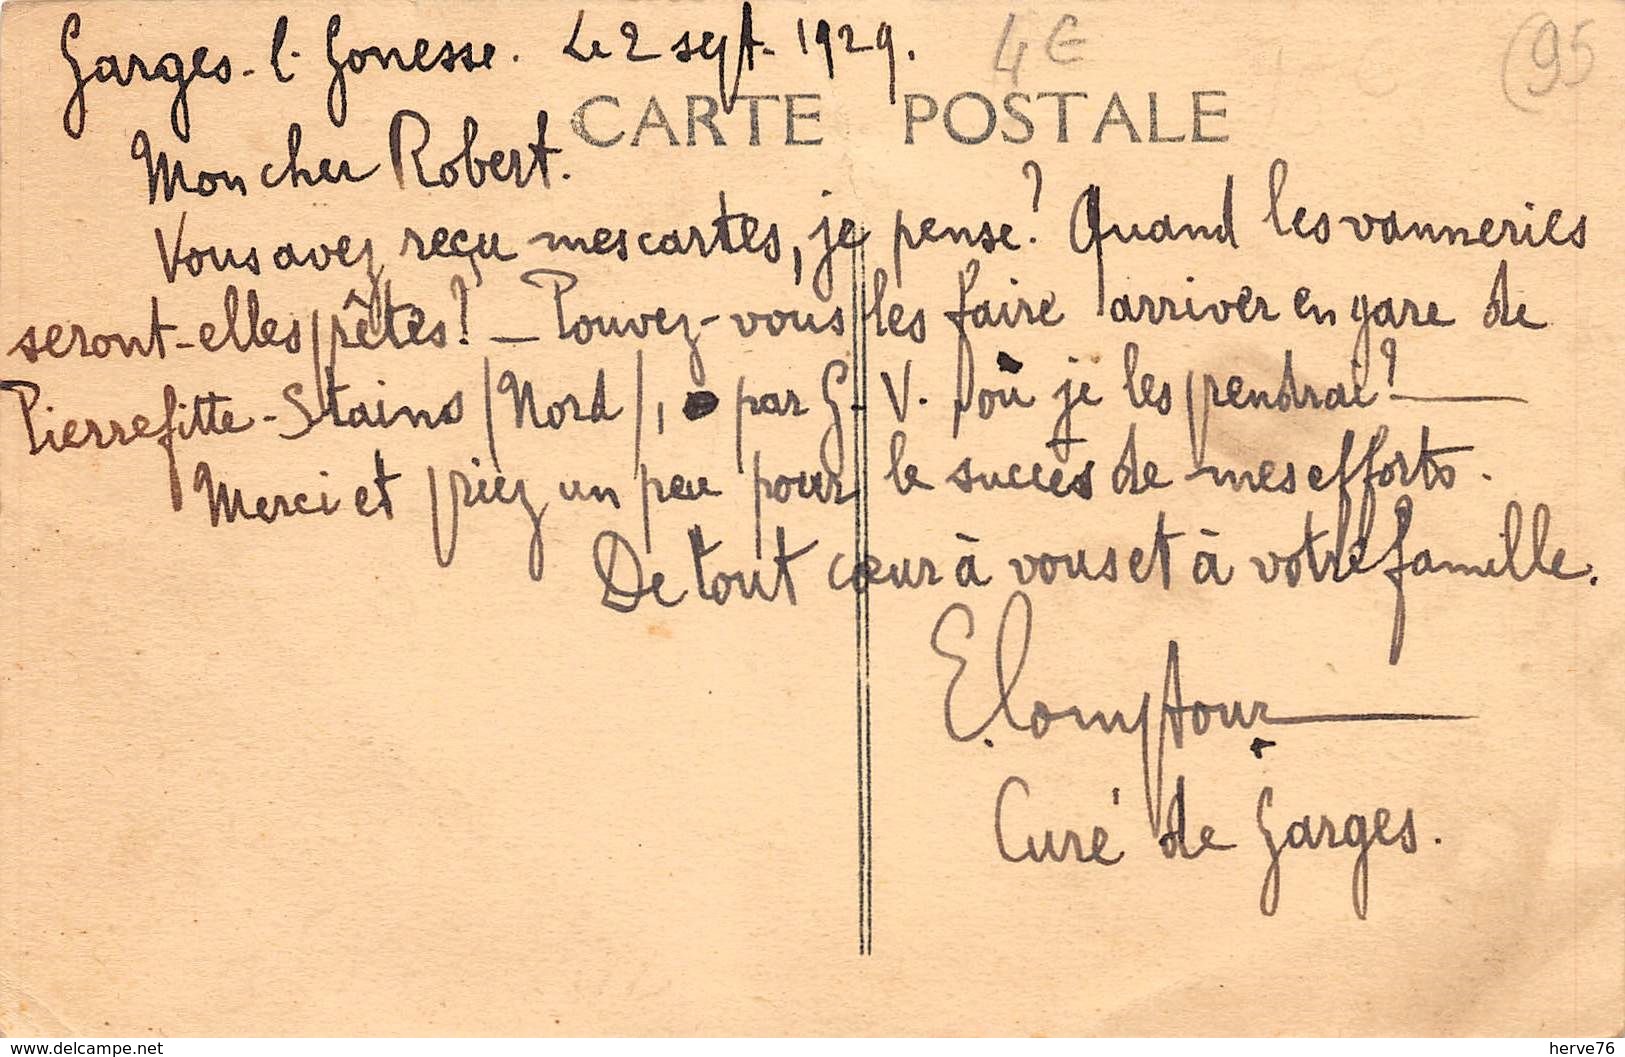 Garges-l-Gonesse. Le 2 sept. 1929.
4€
(95
CARTE POSTALE
Mon cher Robert.
Vous avez reçu mes cartes, je pense? Quand les vanneries
seront-elles prêtes? — Pouvez-vous les faire arriver en gare de
Pierrefitte-Stains (Nord), par G.V. où je les prendrai? —
Merci et priez un peu pour le succès de mes efforts.
De tout cœur à vous et à votre famille.
Curé de Garges.
delcampe.net
herve76